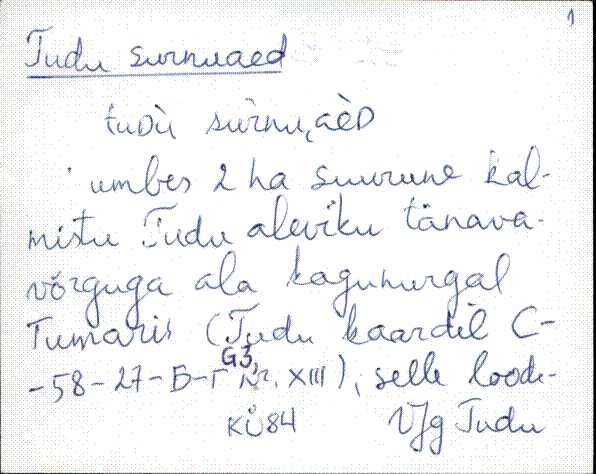 1
Tudu surnuaed
tuDù sùrnu,aèD
umbes 2 ha suurune kal-
mistu Tudu aleviku tänava-
võrguga ala kagunurgal
Tumaris (Tudu kaardil C-
G3,
-58-27-Б-Г Nr. XIII), selle loode-
KÜ84 VJg Tudu